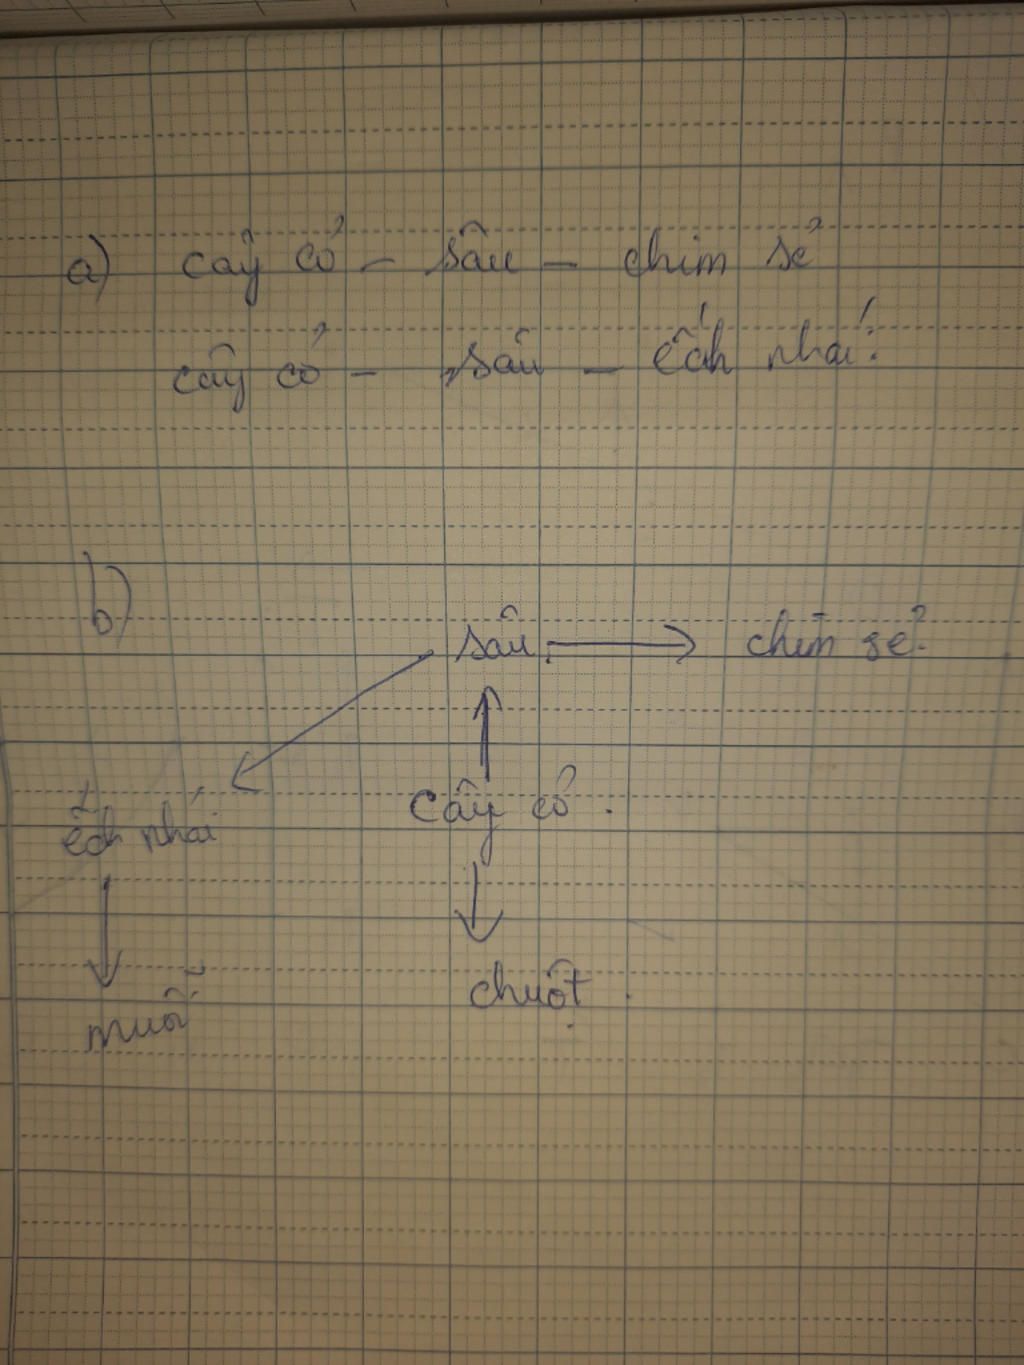 a) cây cỏ - sâu - chim sẻ
cây cỏ - sâu - ếch nhái.
b)
sâu. → chim sẻ.
ếch nhái
cây cỏ.
chuột.
muỗi